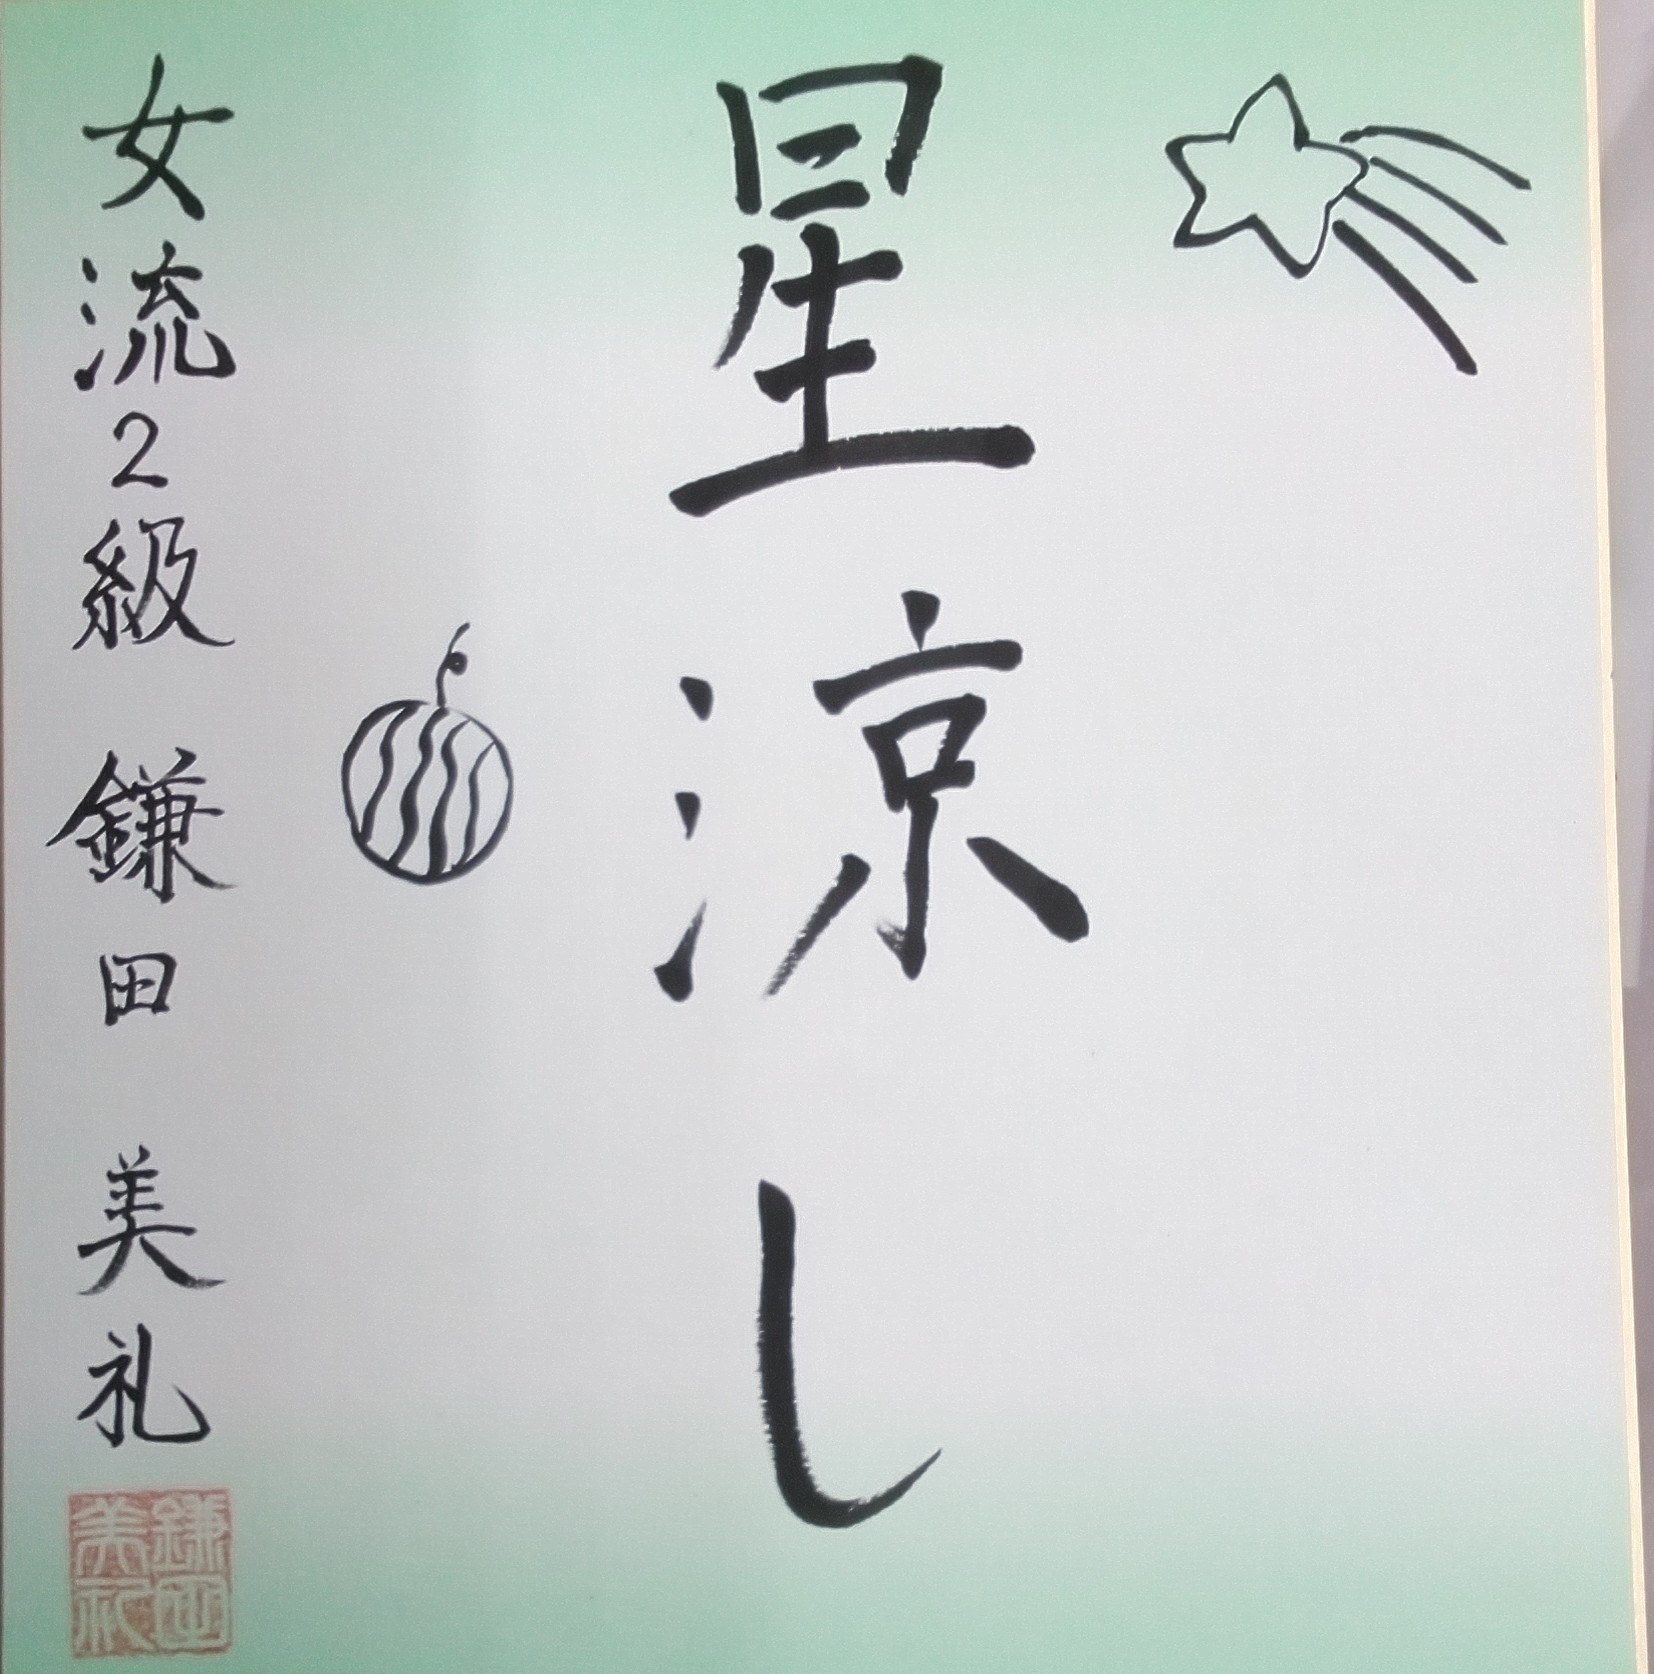 星涼し
女流2級 鎌田 美礼
鎌田
美礼